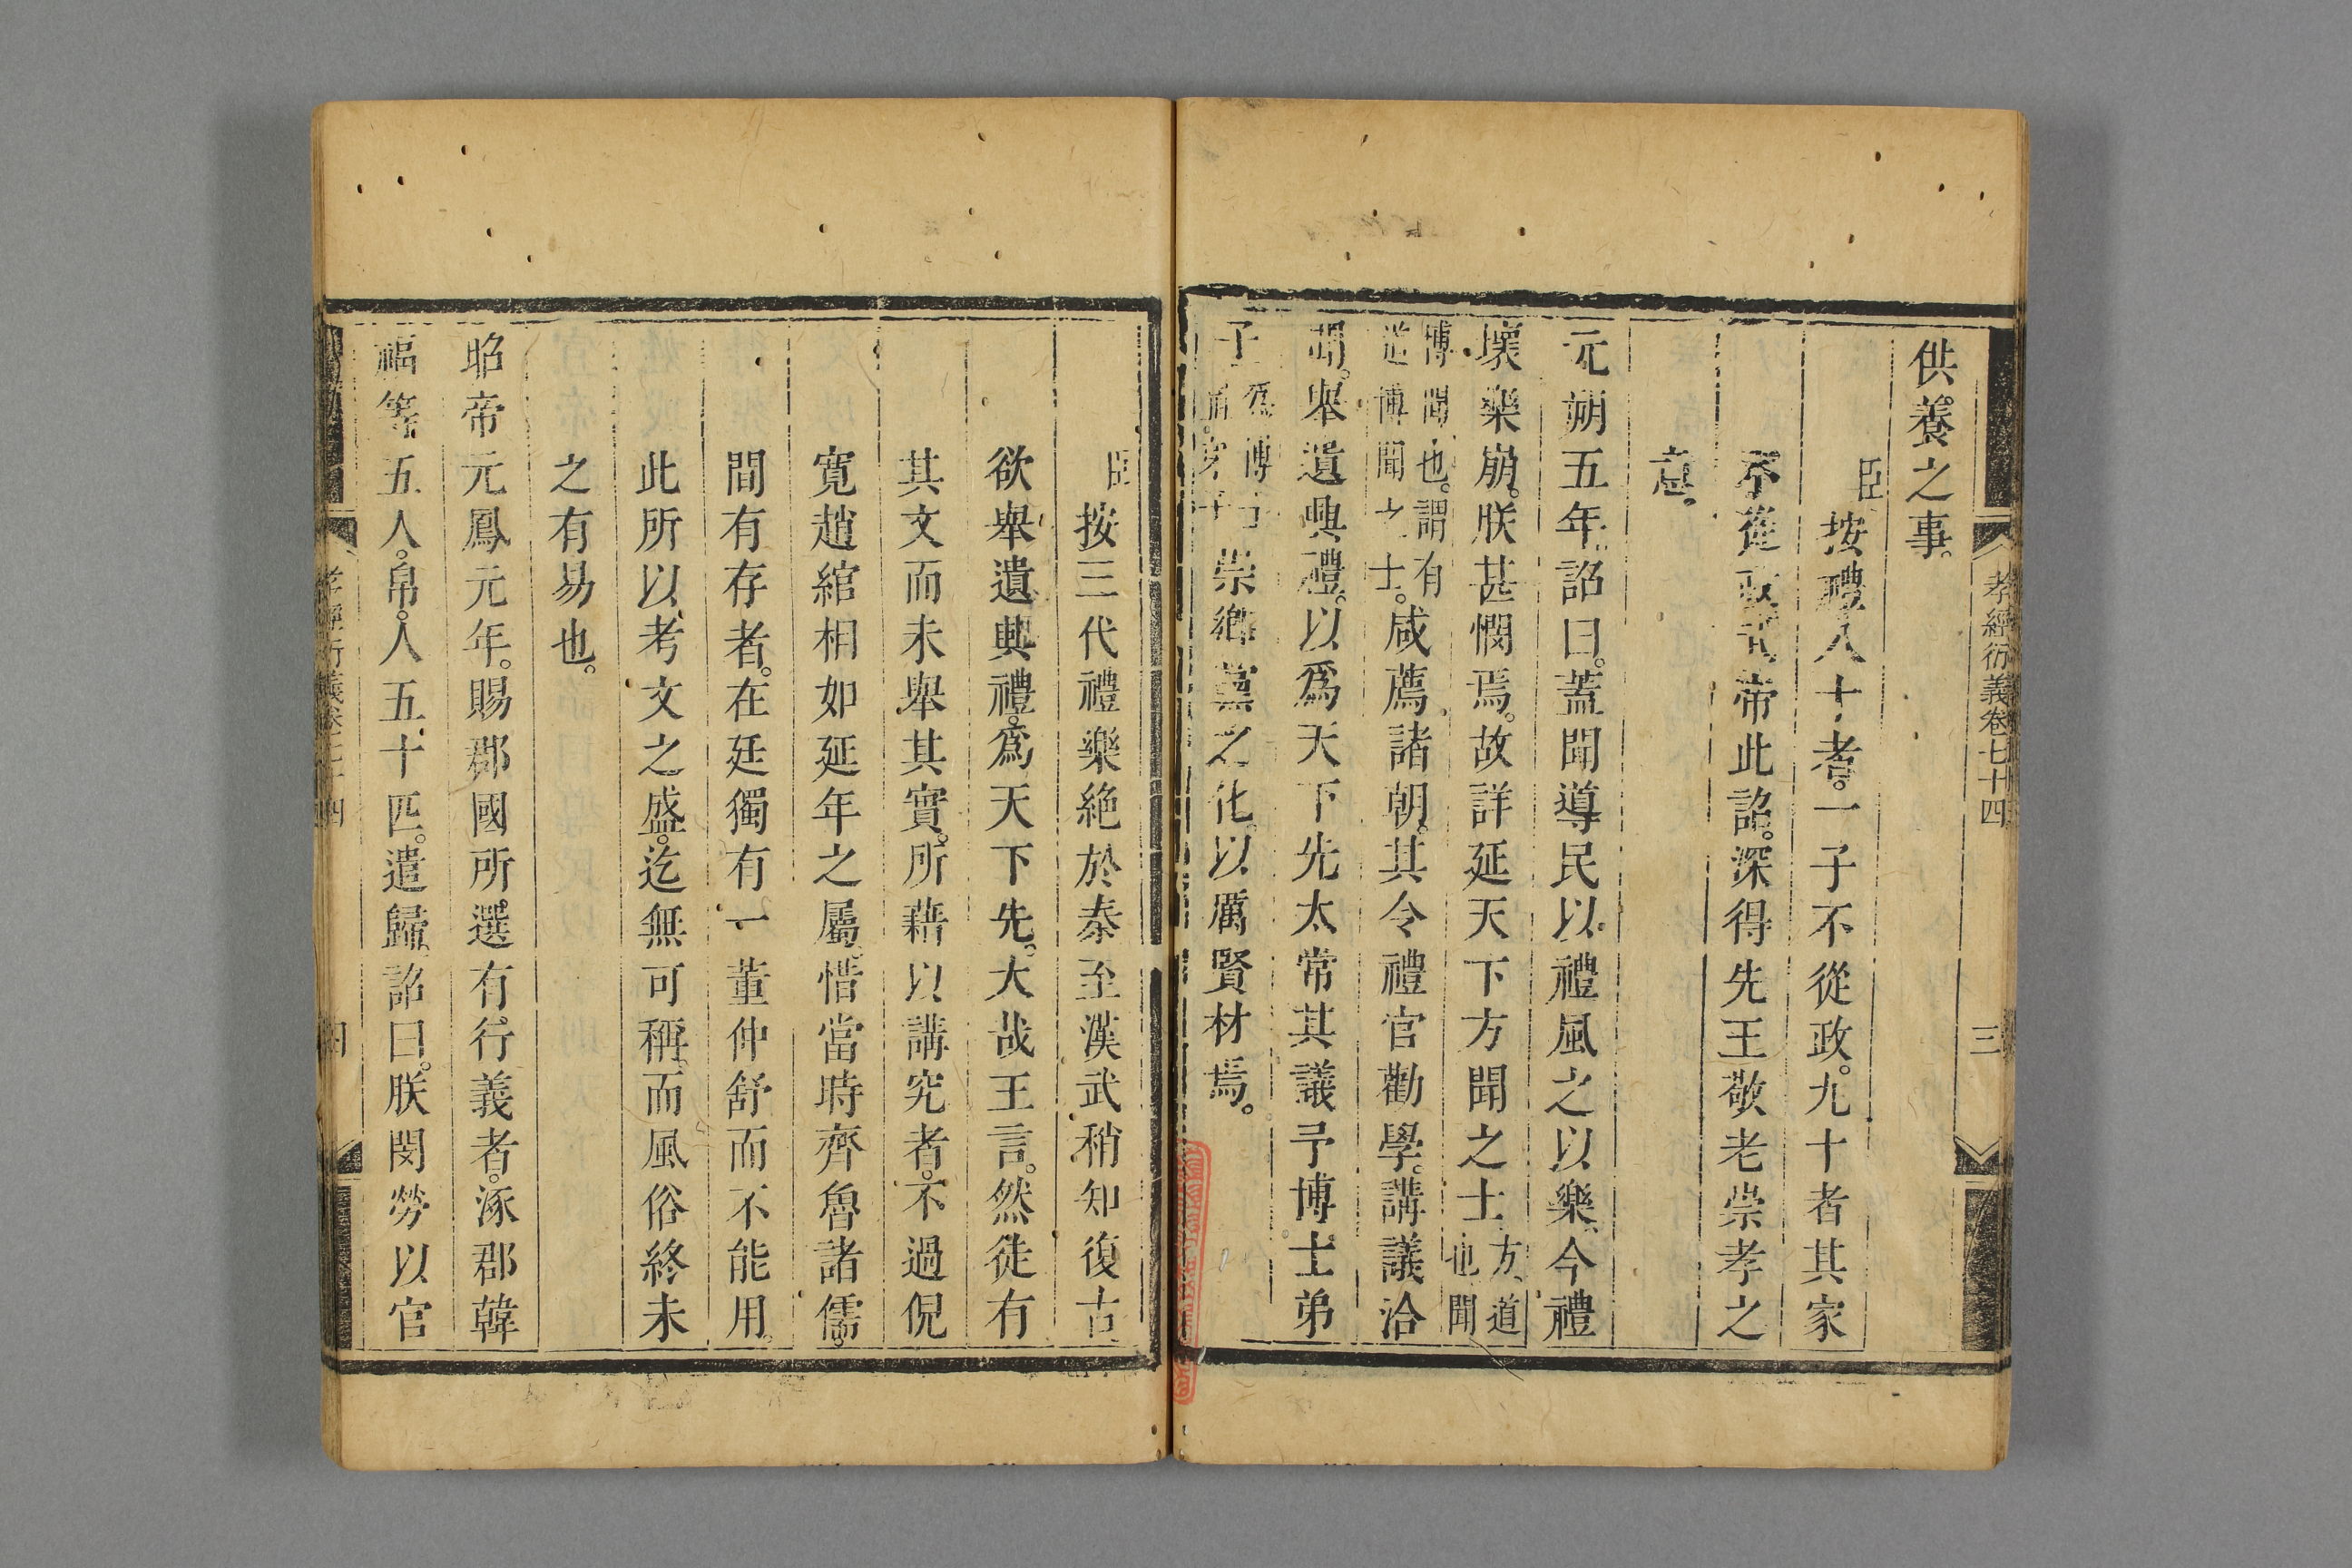 孝經衍義卷七十四 三
供養之事。
臣按禮。八十者。一子不從政。九十者其家
不從政。武帝此詔。深得先王敬老崇孝之
意。
元朔五年。詔曰。蓋聞導民以禮。風之以樂。今禮
壞樂崩。朕甚憫焉。故詳延天下方聞之士方、道也。聞、
博聞也。謂有道博聞之士。咸薦諸朝。其令禮官勸學。講議洽
聞。舉遺興禮。以爲天下先。太常其議予博士弟
子爲博士 崇鄉黨之化。以厲賢材焉。
臣按三代禮樂絶於秦。至漢武稍知復古
欲舉遺興禮。爲天下先。大哉王言。然徒有
其文而未舉其實。所藉以講究者。不過倪
寬趙綰相如延年之屬。惜當時齊魯諸儒。
間有存者。在廷獨有一董仲舒而不能用。
此所以考文之盛。迄無可稱。而風俗終未
之有易也。
昭帝元鳳元年。賜郡國所選有行義者。涿郡韓
福等五人。帛。人五十匹。遣歸。詔曰。朕閔勞以官